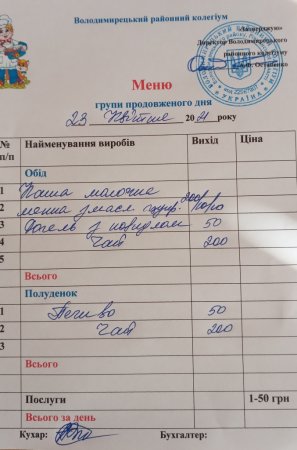 Володимирецький районний колегіум
«Затверджую»
Директор Володимирецького
районного колегіуму
Остапенко
УКРАЇНА
Меню
групи продовженого дня
23 квітня 2021 року
№ п/п Найменування виробів Вихід Ціна
Обід
1 Каша молочна
2 з масл. 200
3 з повидлом 50
4 Чай 200
5
Всього
Полуденок
1 Печиво 50
2 Чай 200
3
Всього
Послуги 1-50 грн
Всього за день
Кухар: Бухгалтер: